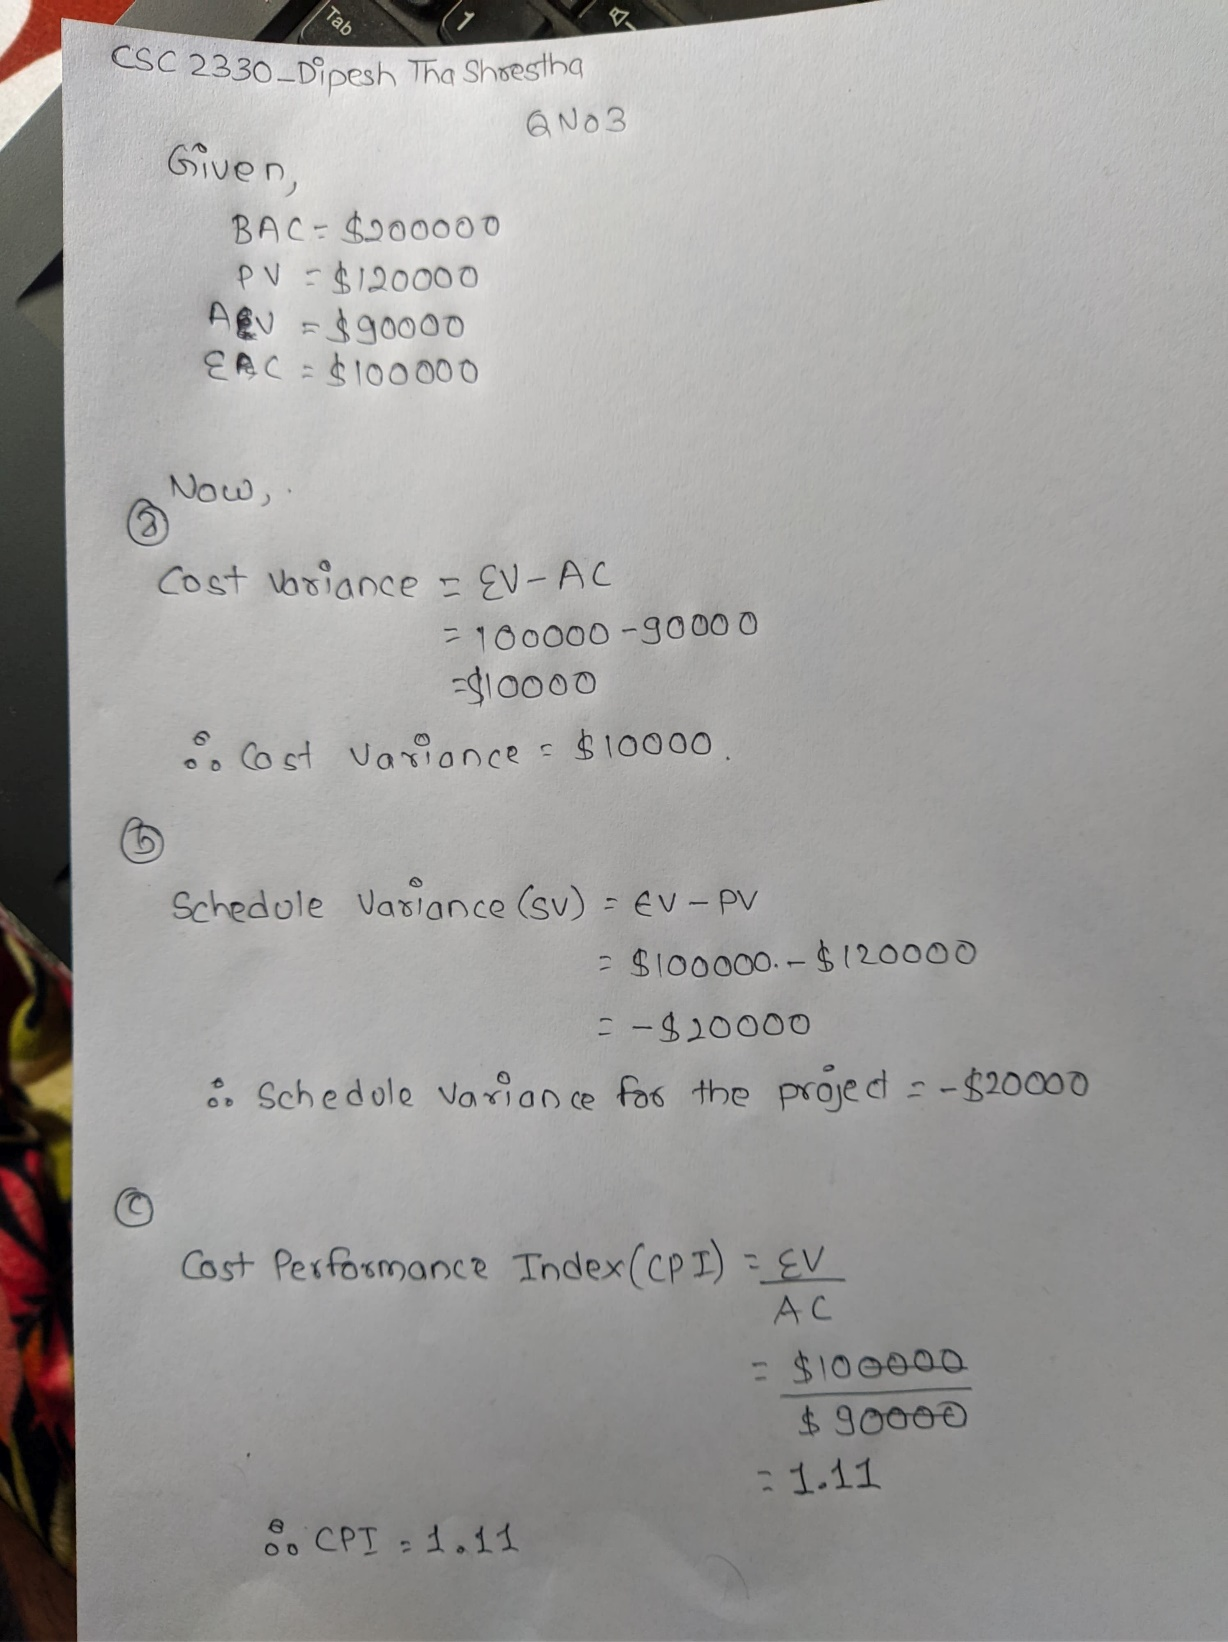 Tab
1
CSC 2330_Dipesh Tha Shrestha
Q NO 3
Given,
BAC = $200000
PV = $120000
= $90000
EAC = $100000
Now,
(a)
Cost variance = EV - AC
= 100000 - 90000
= $10000
∴ Cost Variance = $10000.
(b)
Schedule Variance (SV) = EV - PV
= $100000. - $120000
= - $20000
∴ Schedule Variance for the project = - $20000
(c)
Cost Performance Index (CPI) = EV
AC
= $100000
$90000
= 1.11
∴ CPI = 1.11